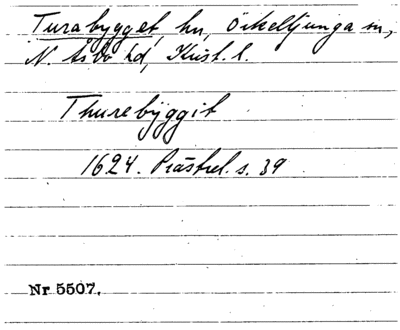 Turabygget, hn, Örkelljunga sn,
N. Åsbo hd, Krist. l.
Thurebÿggit
1624. Prästrel. s. 39
Nr 5507.